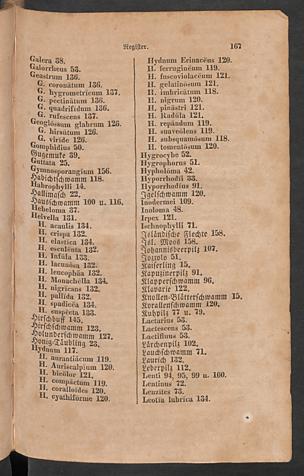 Register. 167
Galera 38.
Galorrheus 53.
Geastrum 136.
G. coronātum 136.
G. hygrometricum 137.
G. pectinātum 136.
G. quadrifidum 136.
G. rufescens 137.
Geoglōssum glabrum 126.
G. hirsūtum 126.
G. viride 126.
Gomphidius 50.
Gugemuke 39.
Guttata 25.
Gymnosporangium 156.
Habichtschwamm 118.
Habrophylli 14.
Hallimasch 22.
Hausschwamm 100 u. 116,
Hebeloma 37.
Helvella 131.
H. acaulis 134.
H. crispa 132.
H. elastica 134.
H. esculēnta 132.
H. Infūla 133.
H. lacunōsa 132.
H. leucophāa 132.
H. Monachēlla 134.
H. nigricans 132.
H. pallida 132.
H. spadicēa 134.
H. suspēcta 133.
Hirschbuff 145.
Hirschschwamm 123,
Holunderschwamm 127,
Honig-Täubling 23,
Hydnum 117.
H. aurantiācum 119.
H. Auriscalpium 120.
H. bicōlor 121,
H. compāctum 119.
H. coralloīdes 120.
H. cyathiforme 120.
Hydnum Erinacēus 120.
H. ferruginēum 119.
H. fuscoviolacēum 121.
H. gelatinōsum 121.
H. imbricātum 118.
H. nigrum 120.
H. pināstri 121.
H. Radūla 121.
H. repāndum 119.
H. suavēolens 119.
H. subsquamōsum 118.
H. tomentōsum 120.
Hygrocybe 52.
Hygrophorus 51.
Hypholōma 42.
Hyporrhodii 33.
Hyporrhodius 91.
Igelschwamm 120.
Inodermei 109.
Inoloma 48.
Irpex 121.
Ischnophylli 71.
Isländische Flechte 158.
Isl. Moos 158.
Johannisbeerpilz 107.
Jozzolo 51.
Kaiserling 15.
Kapuzinerpilz 91,
Klapperschwamm 96,
Klavarie 122,
Knollen-Blätterschwamm 15,
Korallenschwamm 120,
Kuhpilz 77 u. 79.
Lactarius 53.
Lactescens 53.
Lactifluus 53.
Lärchenpilz 102.
Lauchschwamm 71.
Laurich 132,
Leberpilz 112.
Lenti 94, 95, 99 u. 100.
Lentinus 72.
Lenzites 73.
Leotia lubrica 134.